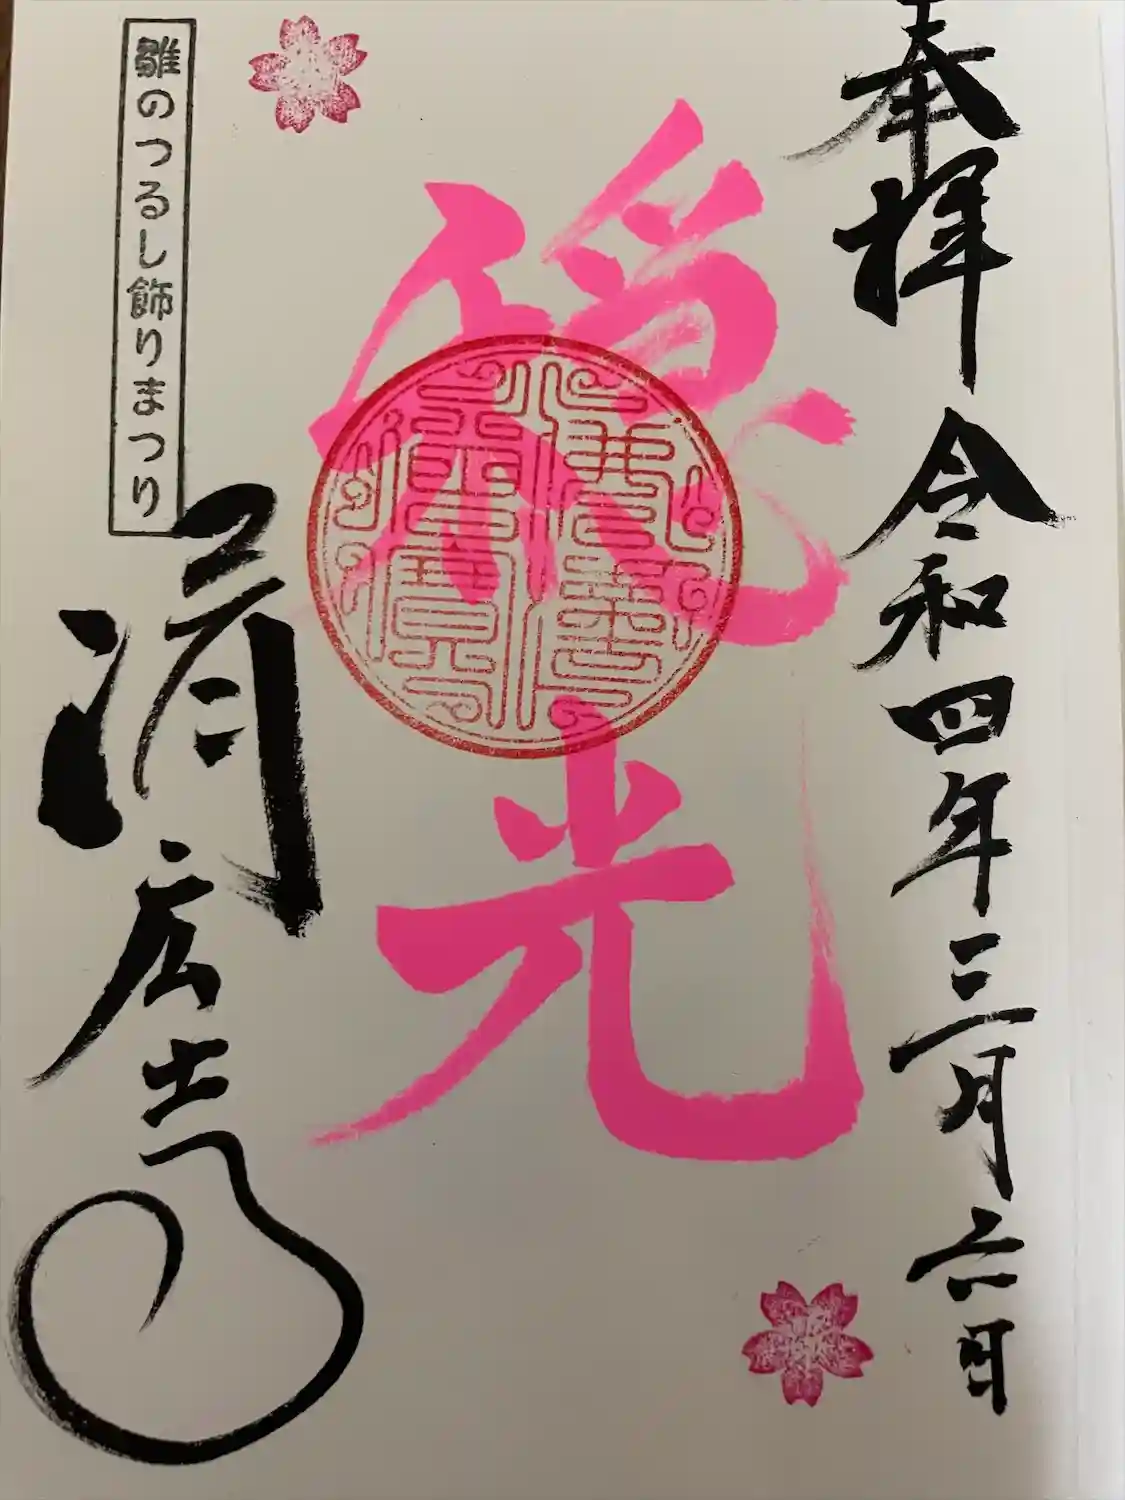 奉拝 令和四年三月六日
光
雛のつるし飾りまつり
済広寺